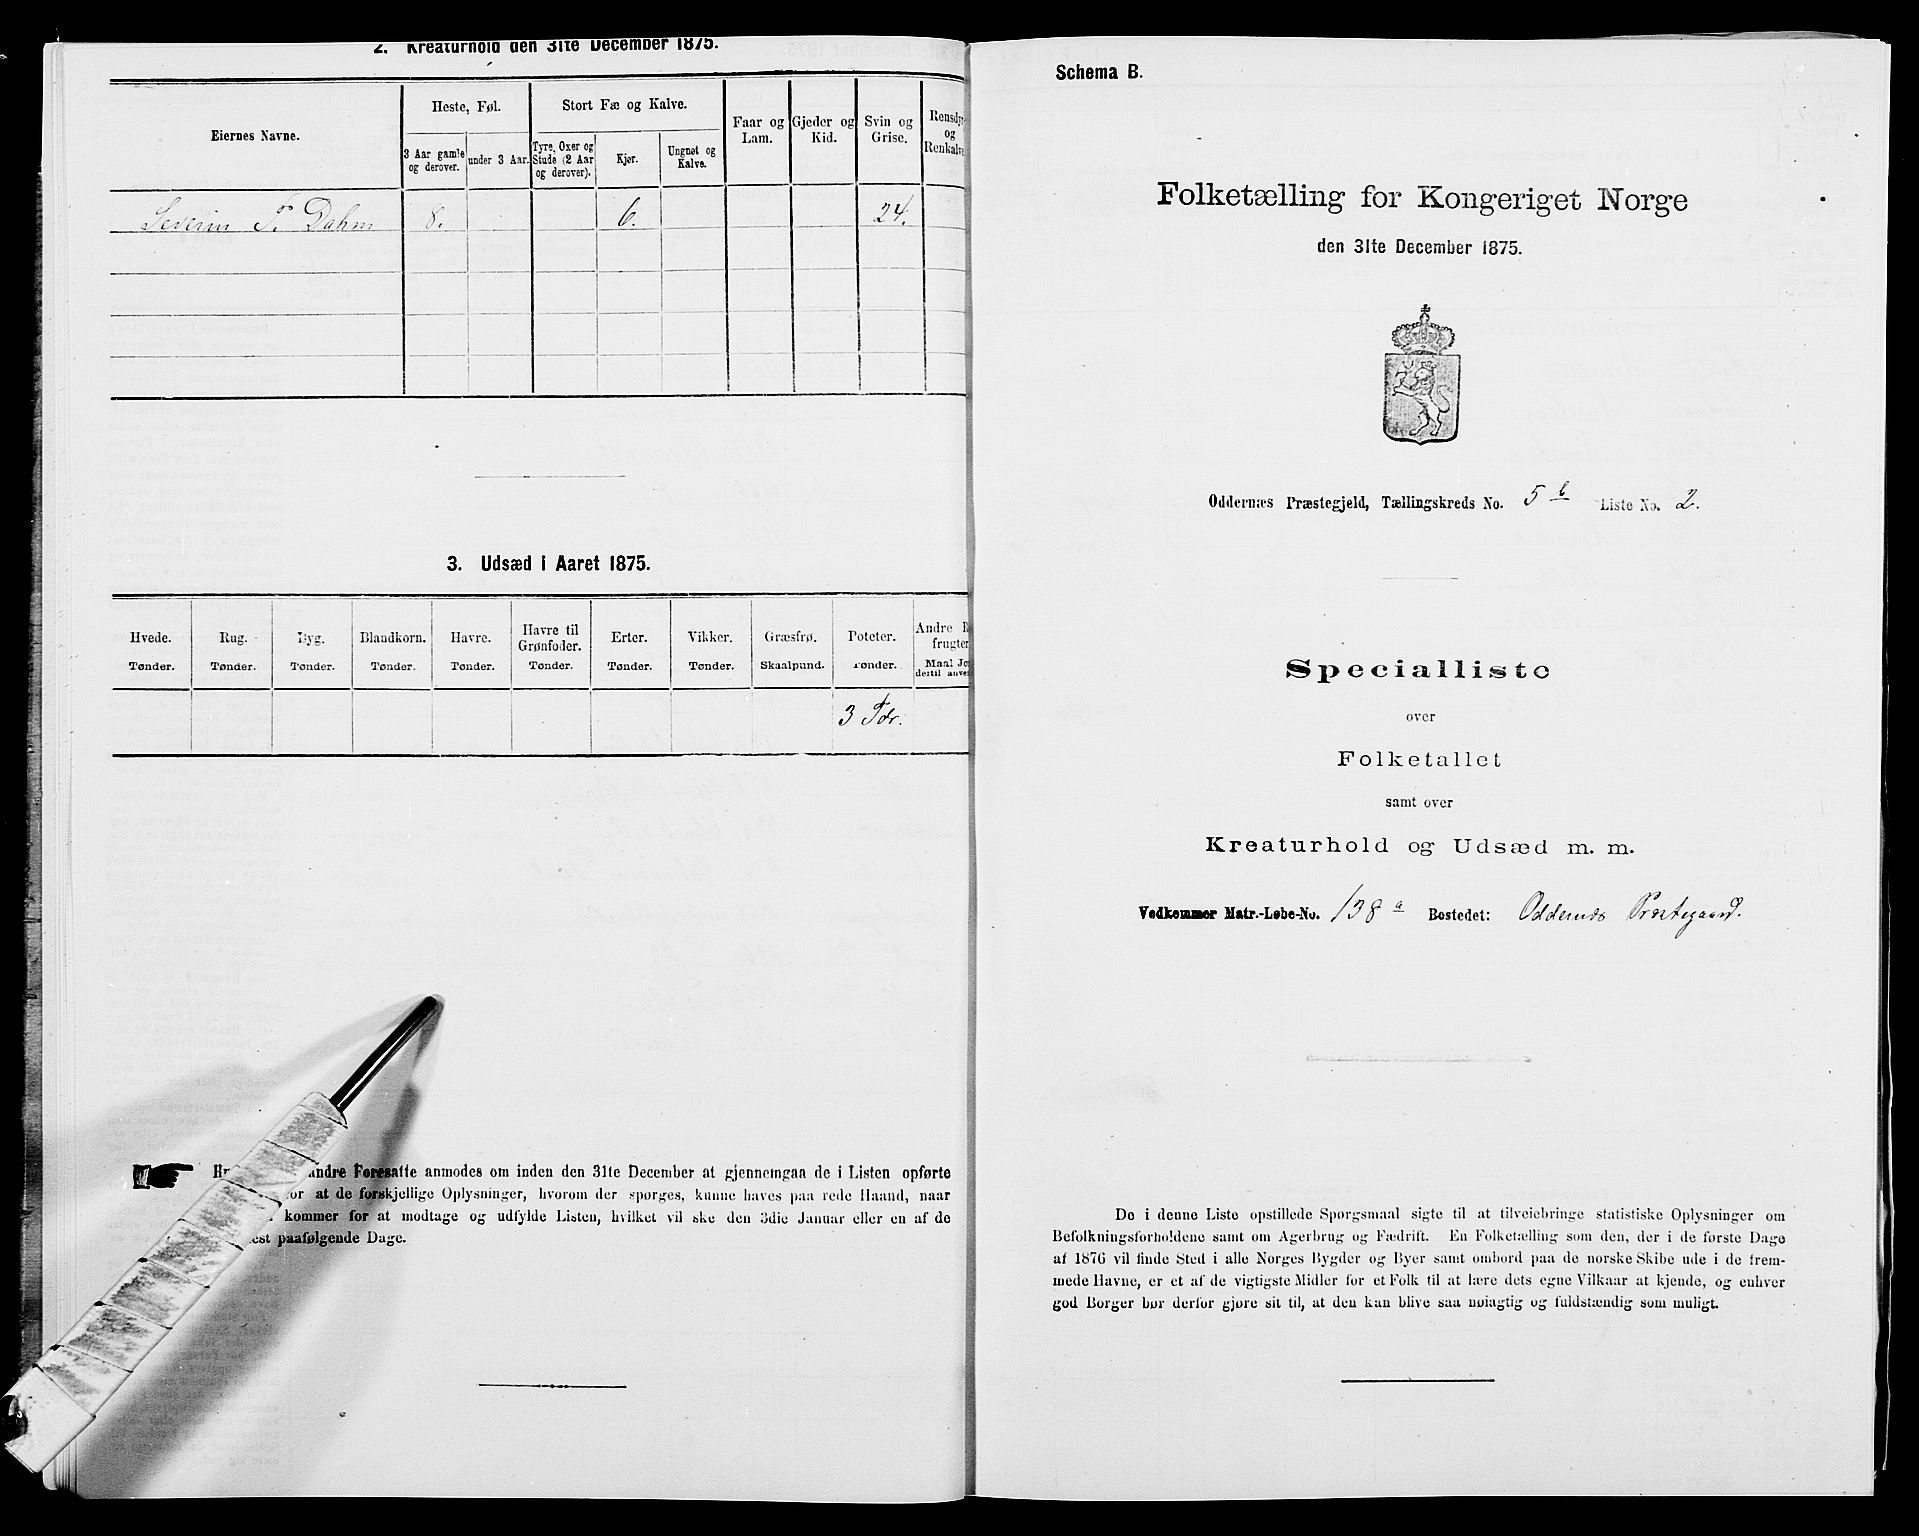 2. Kreaturhold den 31te December 1875.
Eiernes Navne.
Heste, Føl.
3 Aar gamle og derover.
under 3 Aar.
Stort Fæ og Kalve.
Tyre, Oxer og Stude (2 Aar og derover).
Kjør.
Ungnøt og Kalve.
Faar og Lam.
Gjeder og Kid.
Svin og Grise.
Rensdyr og Renkalve
Severin T. Dahm 8. 6. 24.
3. Udsæd i Aaret 1875.
Hvede. Tønder.
Rug. Tønder.
Byg. Tønder.
Blandkorn. Tønder.
Havre. Tønder.
Havre til Grønfoder. Tønder.
Erter. Tønder.
Vikker. Tønder.
Græsfrø. Skaalpund.
Poteter. Tønder.
Andre
frugter
Maal
dertil
3 Tdr.
andre Foresatte anmodes om inden den 31te December at gjennemgaa de i Listen opførte
for at de forskjellige Oplysninger, hvorom der spørges, kunne haves paa rede Haand, naar
kommer for at modtage og udfylde Listen, hvilket vil ske den 3die Januar eller en af de
paafølgende Dage.
Schema B.
Folketælling for Kongeriget Norge
den 31te December 1875.
Oddernæs Præstegjeld, Tællingskreds No. 5 b Liste No. 2.
Specialliste
over
Folketallet
samt over
Kreaturhold og Udsæd m. m.
Vedkommer Matr.-Løbe-No. 138 a Bostedet: Oddernæs Præstegaard.
De i denne Liste opstillede Spørgsmaal sigte til at tilveiebringe statistiske Oplysninger om
Befolkningsforholdene samt om Agerbrug og Fædrift. En Folketælling som den, der i de første Dage
af 1876 vil finde Sted i alle Norges Bygder og Byer samt ombord paa de norske Skibe ude i de frem-
mede Havne, er et af de vigtigste Midler for et Folk til at lære dets egne Vilkaar at kjende, og enhver
god Borger bør derfor gjøre sit til, at den kan blive saa nøiagtig og fuldstændig som muligt.